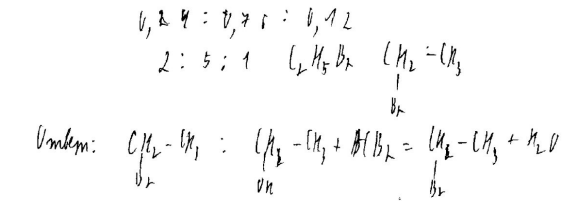 0,24 : 0,76 : 0,12
2 : 5 : 1 C₂H₅Br CH₂ - CH₃
Br
Ответ: CH₂ - CH₃ : CH₂ - CH₃ + HBr = CH₂ - CH₃ + H₂O
Br OH Br